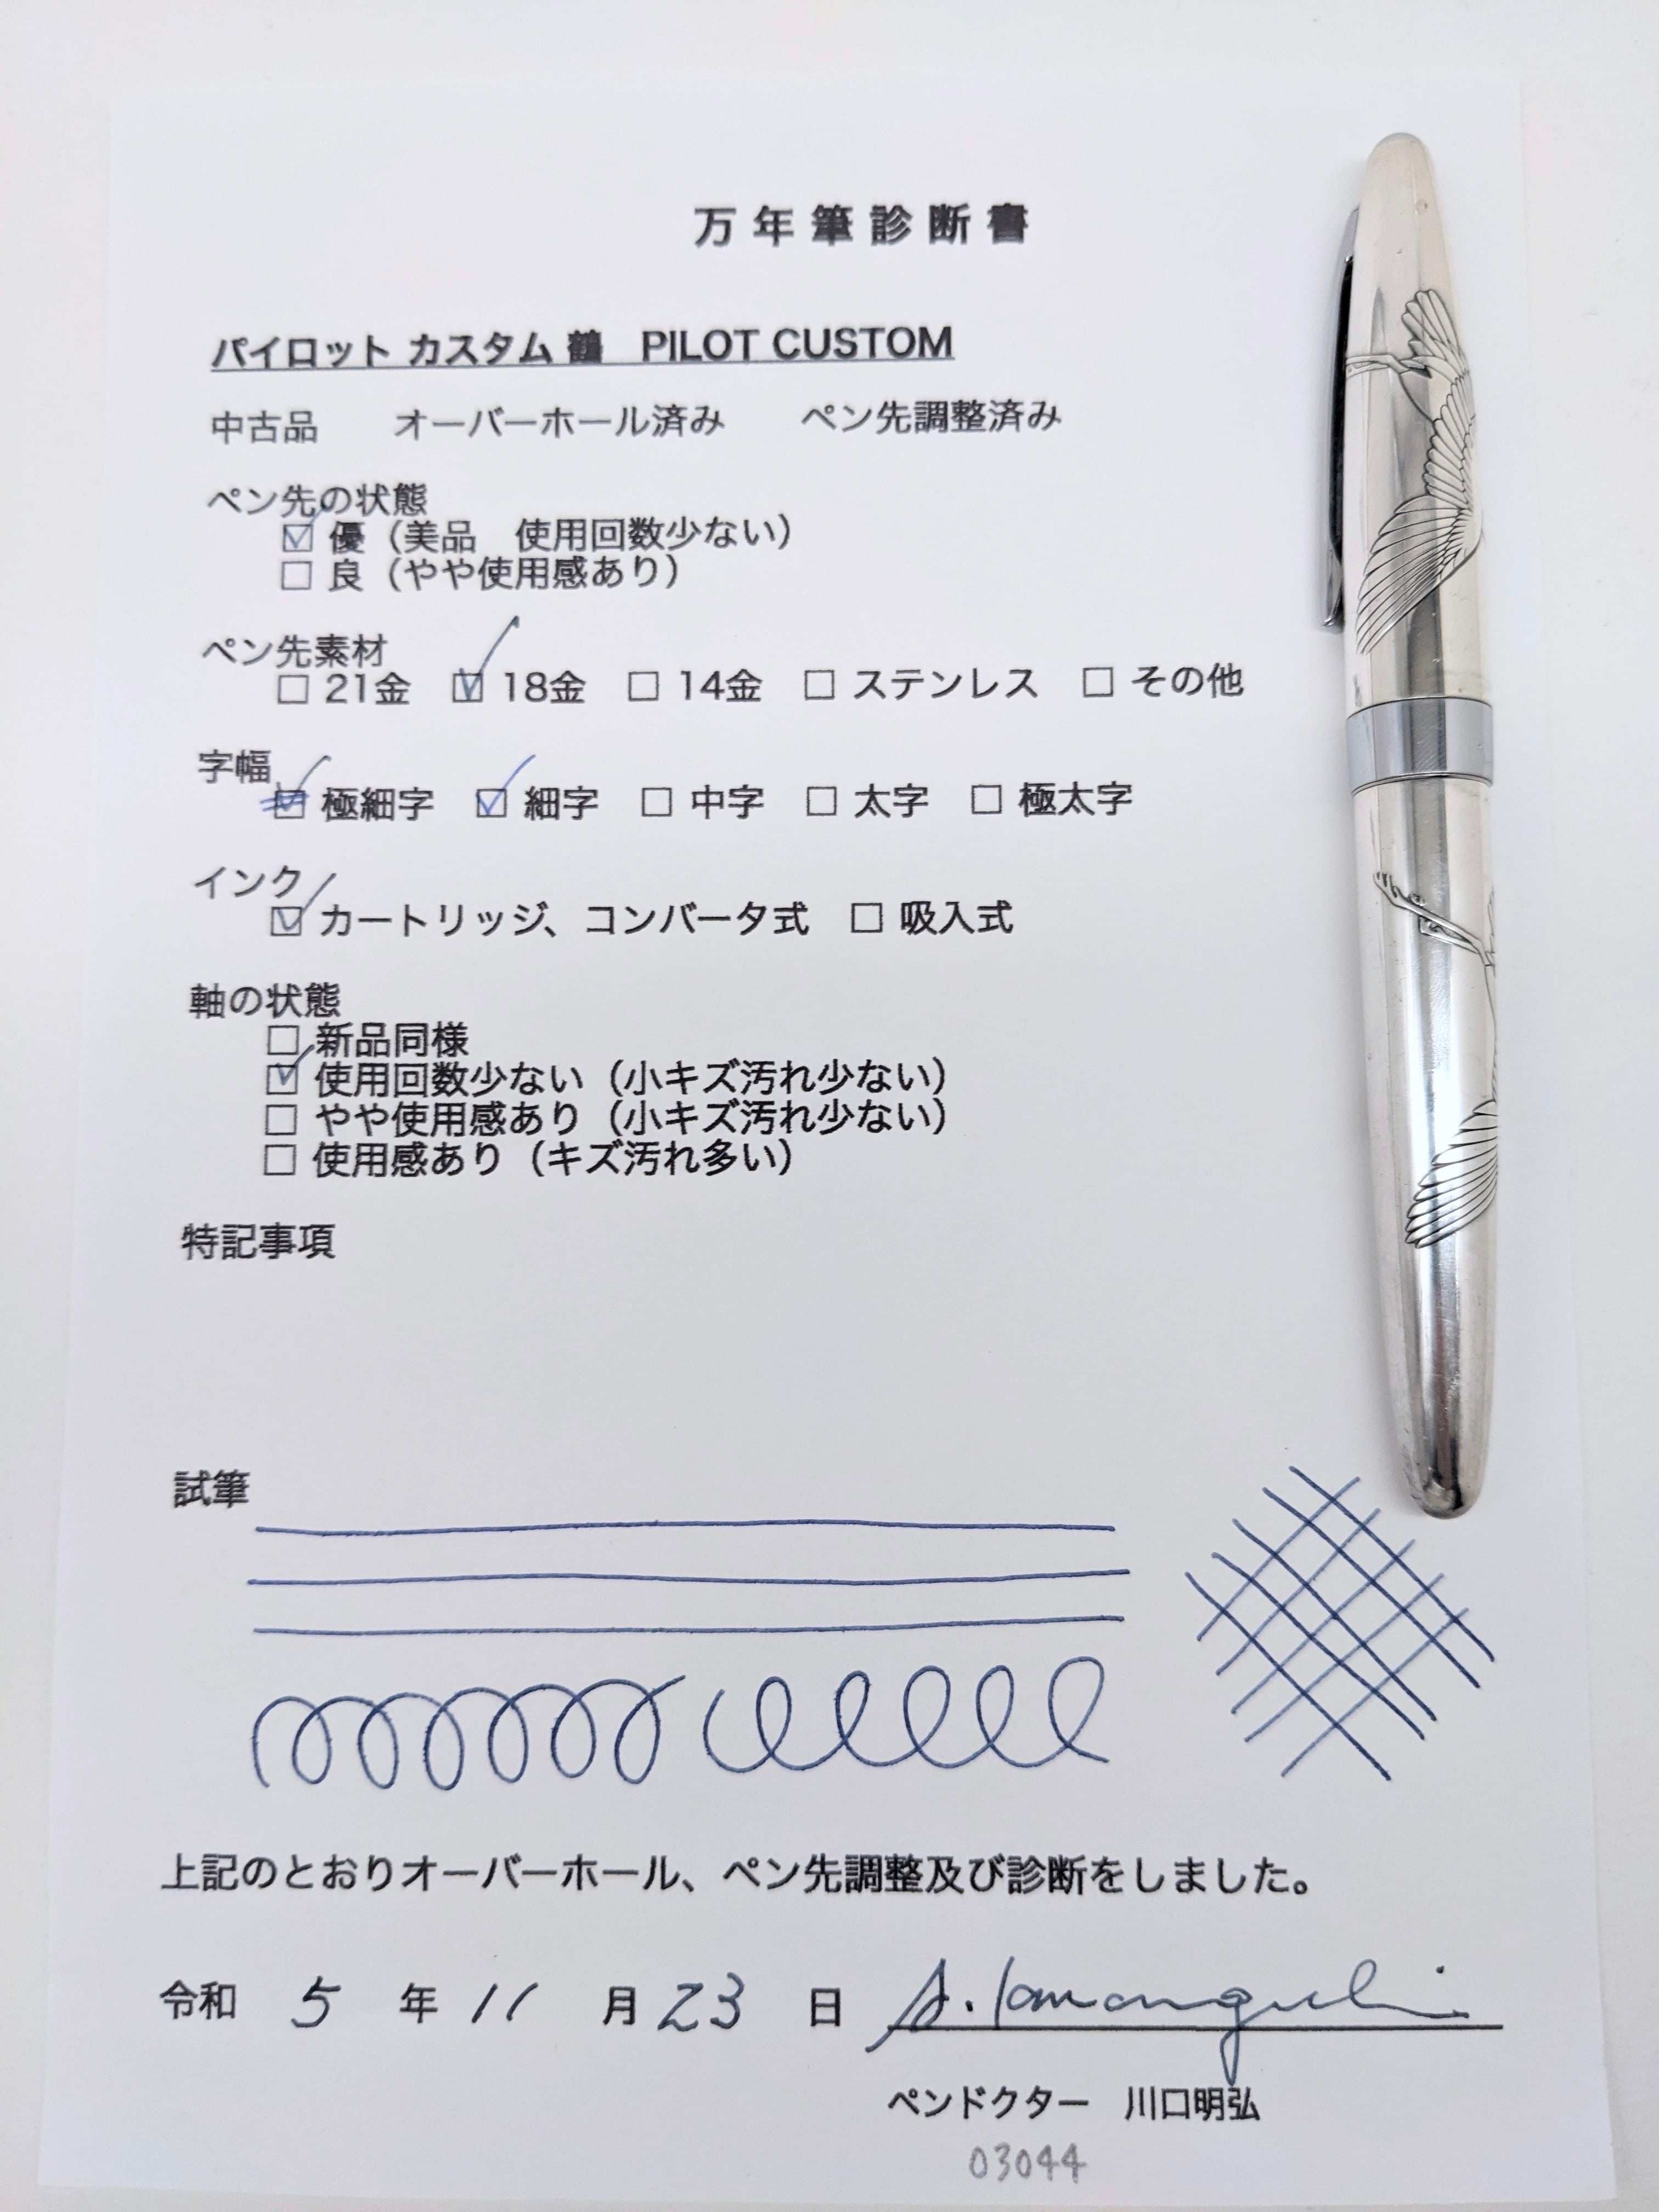 万年筆診断書
パイロット カスタム 鶴　PILOT CUSTOM
中古品　　オーバーホール済み　　ペン先調整済み
ペン先の状態
☑ 優（美品　使用回数少ない）
☐ 良（やや使用感あり）
ペン先素材
☐ 21金　☑ 18金　☐ 14金　☐ ステンレス　☐ その他
字幅
☑ 極細字　☑ 細字　☐ 中字　☐ 太字　☐ 極太字
インク
☑ カートリッジ、コンバータ式　☐ 吸入式
軸の状態
☐ 新品同様
☑ 使用回数少ない（小キズ汚れ少ない）
☐ やや使用感あり（小キズ汚れ少ない）
☐ 使用感あり（キズ汚れ多い）
特記事項
試筆
上記のとおりオーバーホール、ペン先調整及び診断をしました。
令和　5　年　11　月　23　日
ペンドクター　川口明弘
03044